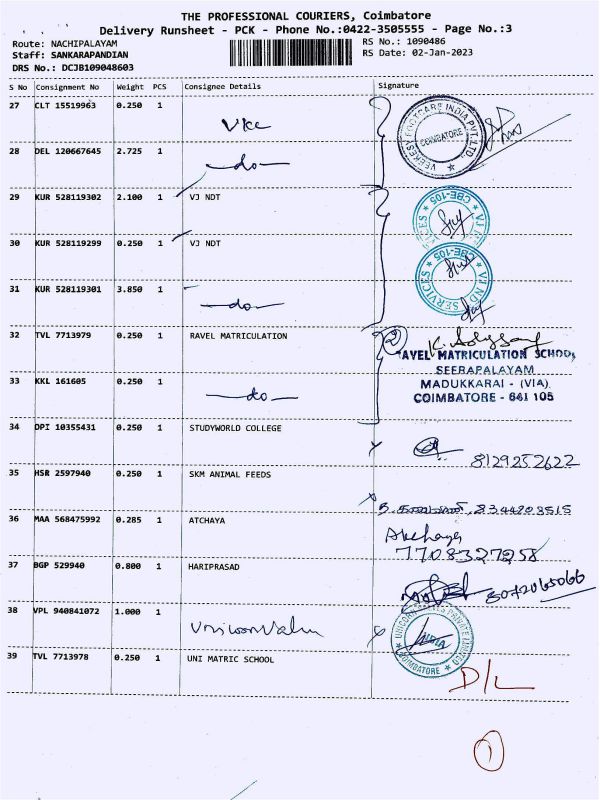 THE PROFESSIONAL COURIERS, Coimbatore
Delivery Runsheet - PCK - Phone No.:0422-3505555 - Page No.:3
Route: NACHIPALAYAM
RS No.: 1090486
Staff: SANKARAPANDIAN
RS Date: 02-Jan-2023
DRS No.: DCJB109048603
S No Consignment No Weight PCS Consignee Details Signature
27 CLT 15519963 0.250 1
VEEKESY FOOTCARE INDIA PVT LTD
COIMBATORE
28 DEL 120667645 2.725 1 do
29 KUR 528119302 2.100 1 VJ NDT
30 KUR 528119299 0.250 1 VJ NDT
VJ NDT SERVICES CBE-105
31 KUR 528119301 3.850 1 do
32 TVL 7713979 0.250 1 RAVEL MATRICULATION
2
RAVEL MATRICULATION SCHOOL
SEERAPALAYAM
MADUKKARAI - (VIA)
COIMBATORE - 641 105
33 KKL 161605 0.250 1 do
34 DPI 10355431 0.250 1 STUDYWORLD COLLEGE
8129252622
35 HSR 2597940 0.250 1 SKM ANIMAL FEEDS
8344203515
36 MAA 568475992 0.285 1 ATCHAYA
Atchaya
7708327258
37 BGP 529940 0.800 1 HARIPRASAD
8072065066
38 VPL 940841072 1.000 1
COIMBATORE
39 TVL 7713978 0.250 1 UNI MATRIC SCHOOL
D/L
1